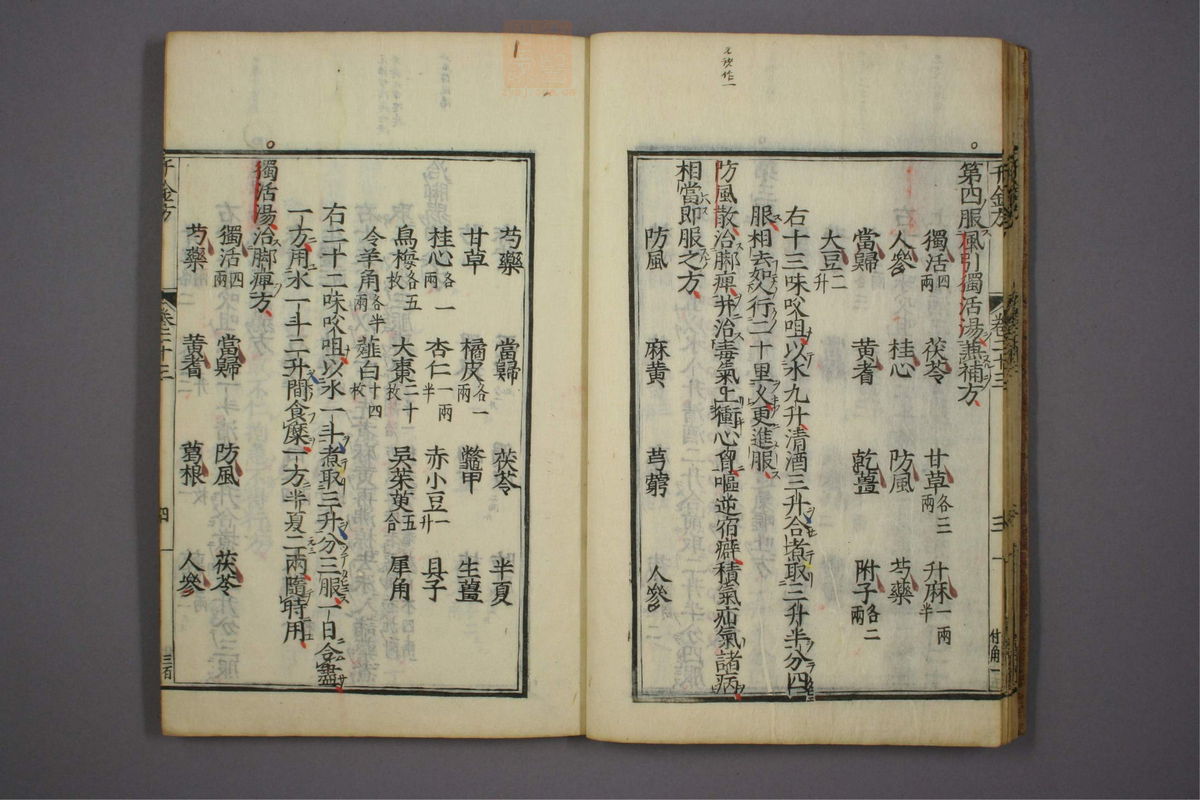 第四服風引獨活湯兼補方
獨活四兩 茯苓 甘草各三兩 升麻一兩半
人參 桂心 防風 芍藥
當歸 黃耆 乾薑 附子各二兩
大豆二升
右十三味㕮咀以水九升清酒三升合煮取三升半分四
服相去如人行二十里久更進服
防風散治脚痺并治毒氣上衝心胷嘔逆宿癖積氣疝氣諸病
相當即服之方
防風 麻黃 芎藭 人參
芍藥 當歸 茯苓 半夏
甘草 橘皮各一兩 鱉甲 生薑
桂心各一兩 杏仁一兩半 赤小豆一升 貝子
烏梅各五枚 大棗二十枚 吳茱萸五合 犀角
令羊角各半兩 薤白十四枚
右二十二味㕮咀以水一斗煮取三升分三服一日令盡
一方用水一斗二升間食糜一方半夏二兩隨時用
獨活湯治脚痺方
獨活四兩 當歸 防風 茯苓
芍藥 黃耆 葛根 人參
千金方 卷二十三 四
三百